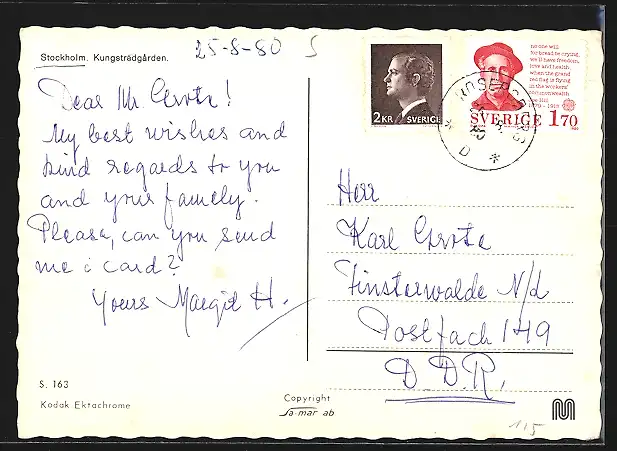 Stockholm. Kungsträdgården.
25-8-80
Dear Mr. Grote!
My best wishes and
kind regards to you
and your family.
Please, can you send
me a card?
Yours Margit H.
2KR SVERIGE
no one will
for bread be crying
we'll have freedom,
love and health
when the grand
red flag is flying
in the workers'
commonwealth
Joe Hill
1879-1915
SVERIGE 170
D
Herr
Karl Grote
Finsterwalde N/d
Postfach 149
D.D.R.
S. 163
Kodak Ektachrome
Copyright
Sa-mar ab
115